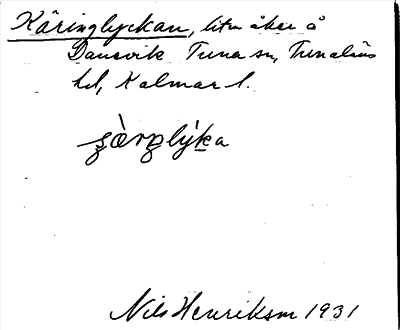 Käringlyckan, liten åker å
Dansvik Tuna sn, Tunaläns
hd, Kalmar l.
Nils Henriksson 1931